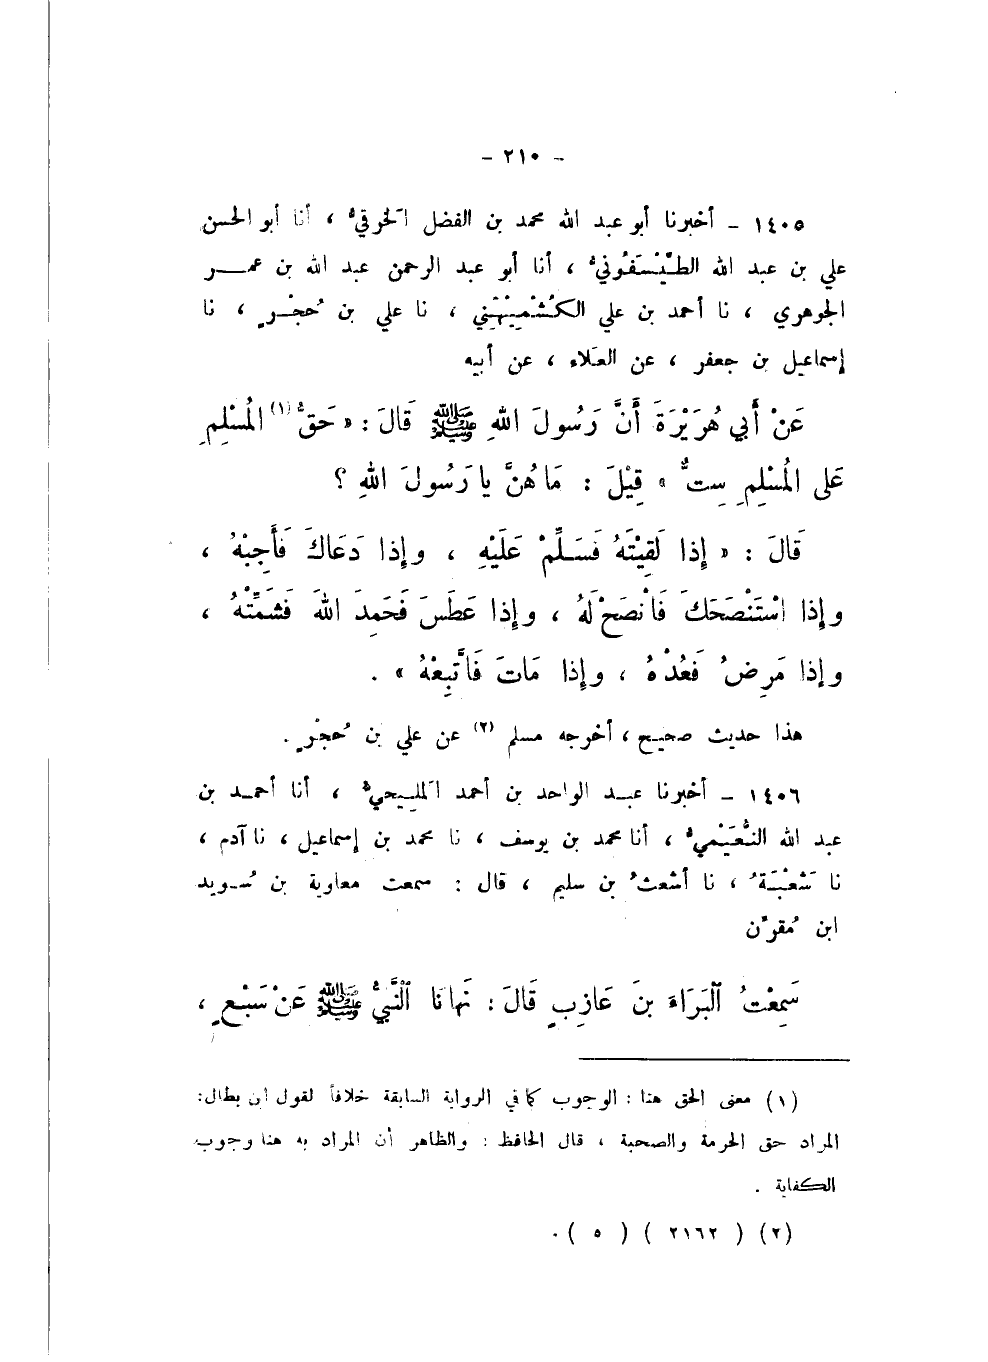 - ٢١٠ -
١٤٠٥ - أخبرنا أبو عبد الله محمد بن الفضل الخَرقيُّ ، أنا أبو الحسن
علي بن عبد الله الطَّيْسَفُونيُّ ، أنا أبو عبد الرحمن عبد الله بن عمــر
الجوهري ، نا أحمد بن علي الكُشْمِيْهَني ، نا علي بن حُجْـرٍ ، نا
إسماعيل بن جعفر ، عن العَلاء ، عن أبيه
عَنْ أَبي هُرَيْرَةَ أَنَّ رَسُولَ اللهِ ﷺ قَالَ : « حَقُّ (١) الُمسْلِمِ
عَلى الُمسْلِمِ سِتٌّ » قِيْلَ : مَا هُنَّ يا رَسُولَ اللهِ ؟
قَالَ : « إِذا لَقِيْتَهُ فَسَـلِّمْ عَلَيْهِ ، وإِذا دَعَاكَ فَأَجِبْهُ ،
وإِذا اسْتَنْصَحَكَ فَانْصَحْ لَهُ ، وإِذا عَطَسَ فَحَمِدَ اللهَ فَشَمِّتْهُ ،
وإِذا مَرِضَ فَعُدْهُ ، وإِذا مَاتَ فَاتَّبِعْهُ » .
هذا حديث صحيح ، أخرجه مسلم (٢) عن علي بن حُجْرٍ .
١٤٠٦ - أخبرنا عبـد الواحد بن أحمد المَلِـيحيُّ ، أنا أحمـد بن
عبد الله النُّعَيْميُّ ، أنا محمد بن يوسف ، نا محمد بن إسماعيل ، نا آدم ،
نا شُعْبَـةُ ، نا أشعثُ بن سليم ، قال : سمعت معاوية بن سُـويد
ابن مُقرِّن
سَمِعْتُ ٱلْبَرَاءَ بنَ عَازِبٍ قَالَ : نَهانَا ٱلنَّبيُّ ﷺ عَنْ سَبْعٍ ،
(١) معنى الحق هنا : الوجوب كما في الرواية السابقة خلافاً لقول ابن بطال:
المراد حق الحرمة والصحبة ، قال الحافظ : والظاهر أن المراد به هنا وجوب
الكفاية .
(٢) ( ٢١٦٢ ) ( ٥ ) .